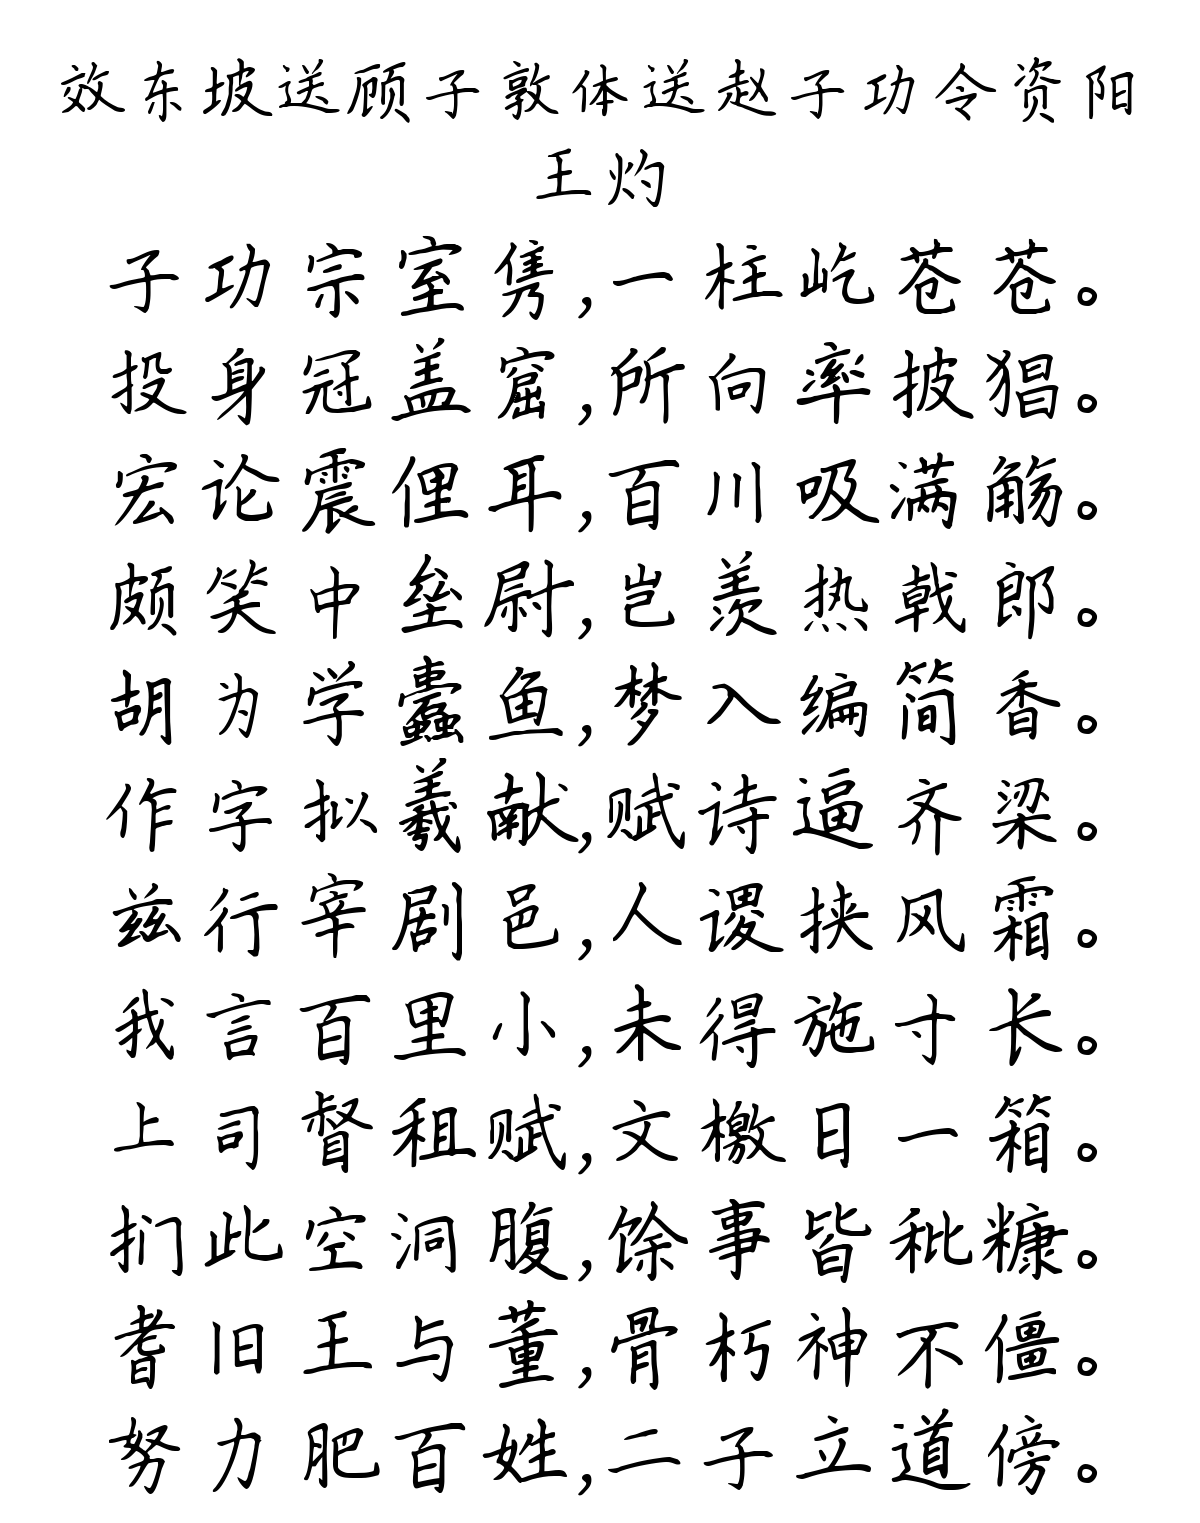 效东坡送顾子敦体送赵子功令资阳
王灼
子功宗室隽,一柱屹苍苍。
投身冠盖窟,所向率披猖。
宏论震俚耳,百川吸满觞。
颇笑中垒尉,岂羡热戟郎。
胡为学蠹鱼,梦入编简香。
作字拟羲献,赋诗逼齐梁。
兹行宰剧邑,人谡挟风霜。
我言百里小,未得施寸长。
上司督租赋,文檄日一箱。
扪此空洞腹,馀事皆秕糠。
耆旧王与董,骨朽神不僵。
努力肥百姓,二子立道傍。